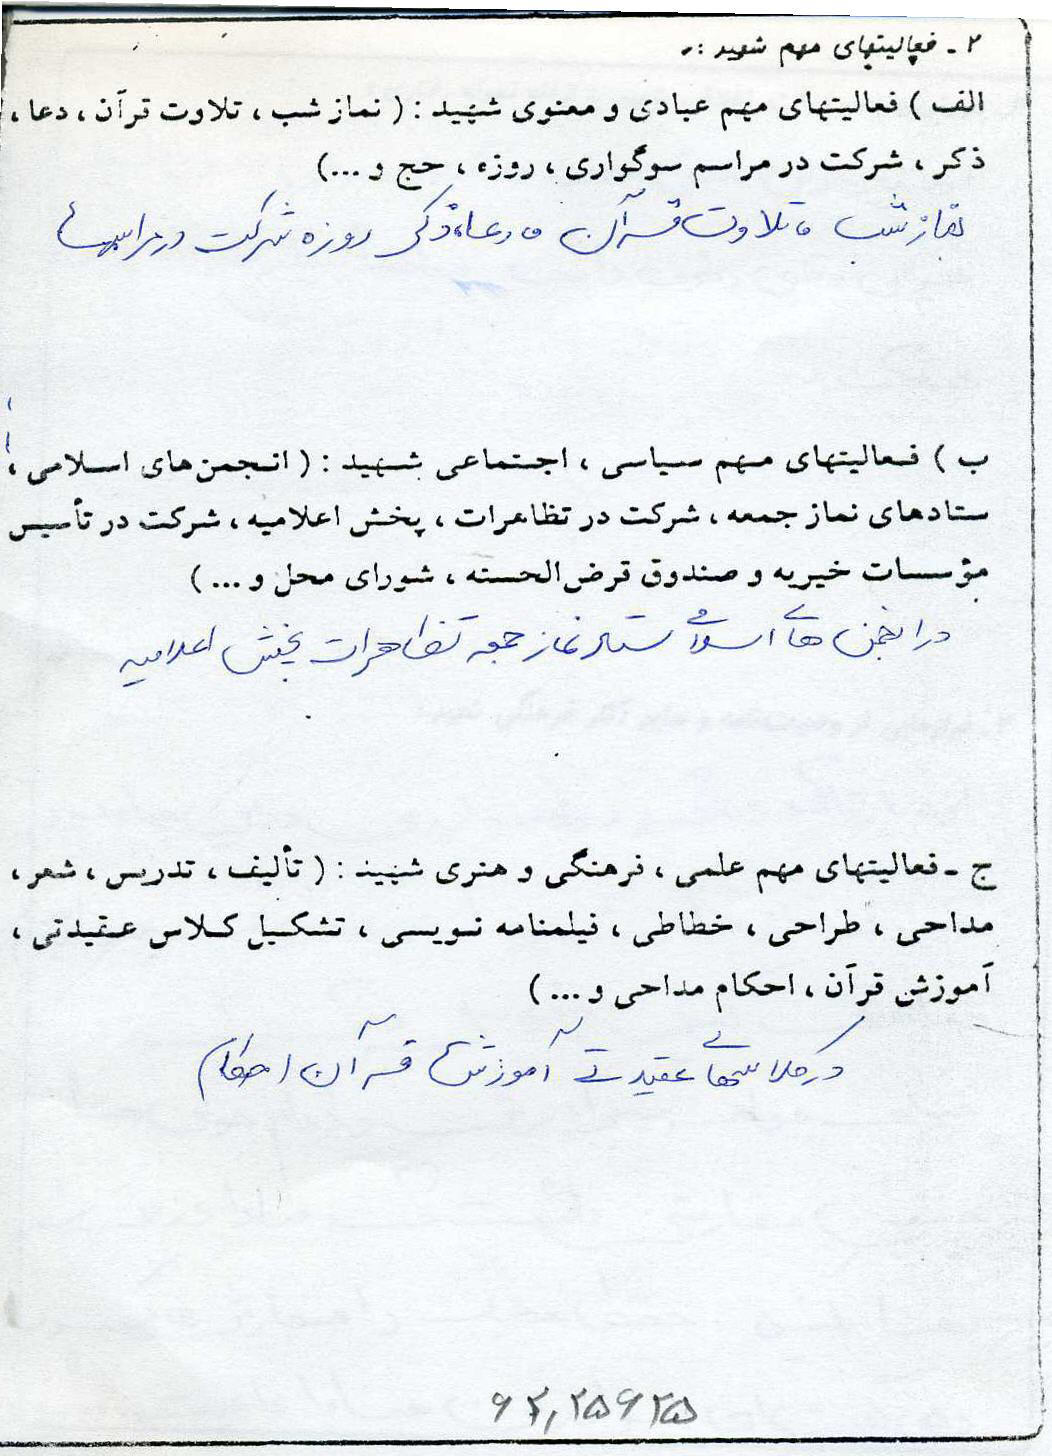 ۲ - فعالیتهای مهم شهید :
الف ) فعالیتهای مهم عبادی و معنوی شهید : ( نماز شب ، تلاوت قرآن ، دعا ،
ذکر ، شرکت در مراسم سوگواری ، روزه ، حج و ...)
نماز شب ، تلاوت قرآن ، دعا، ذکر روزه شرکت در مراسمهای
ب ) فعالیتهای مهم سیاسی ، اجتماعی شهید : ( انجمن‌های اسلامی ،
ستادهای نماز جمعه ، شرکت در تظاهرات ، پخش اعلامیه ، شرکت در تأسیس
مؤسسات خیریه و صندوق قرض‌الحسنه ، شورای محل و ... )
در انجمن های اسلامی ستاد نماز جمعه تظاهرات پخش اعلامیه
ج - فعالیتهای مهم علمی ، فرهنگی و هنری شهید : ( تألیف ، تدریس ، شعر ،
مداحی ، طراحی ، خطاطی ، فیلمنامه نویسی ، تشکیل کلاس عقیدتی ،
آموزش قرآن ، احکام مداحی و ... )
در کلاسهای عقیدتی آموزش قرآن احکام